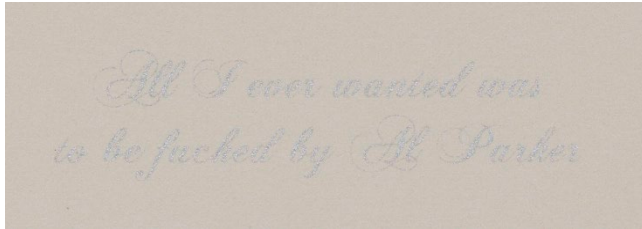 All I ever wanted was
to be fucked by Al Parker